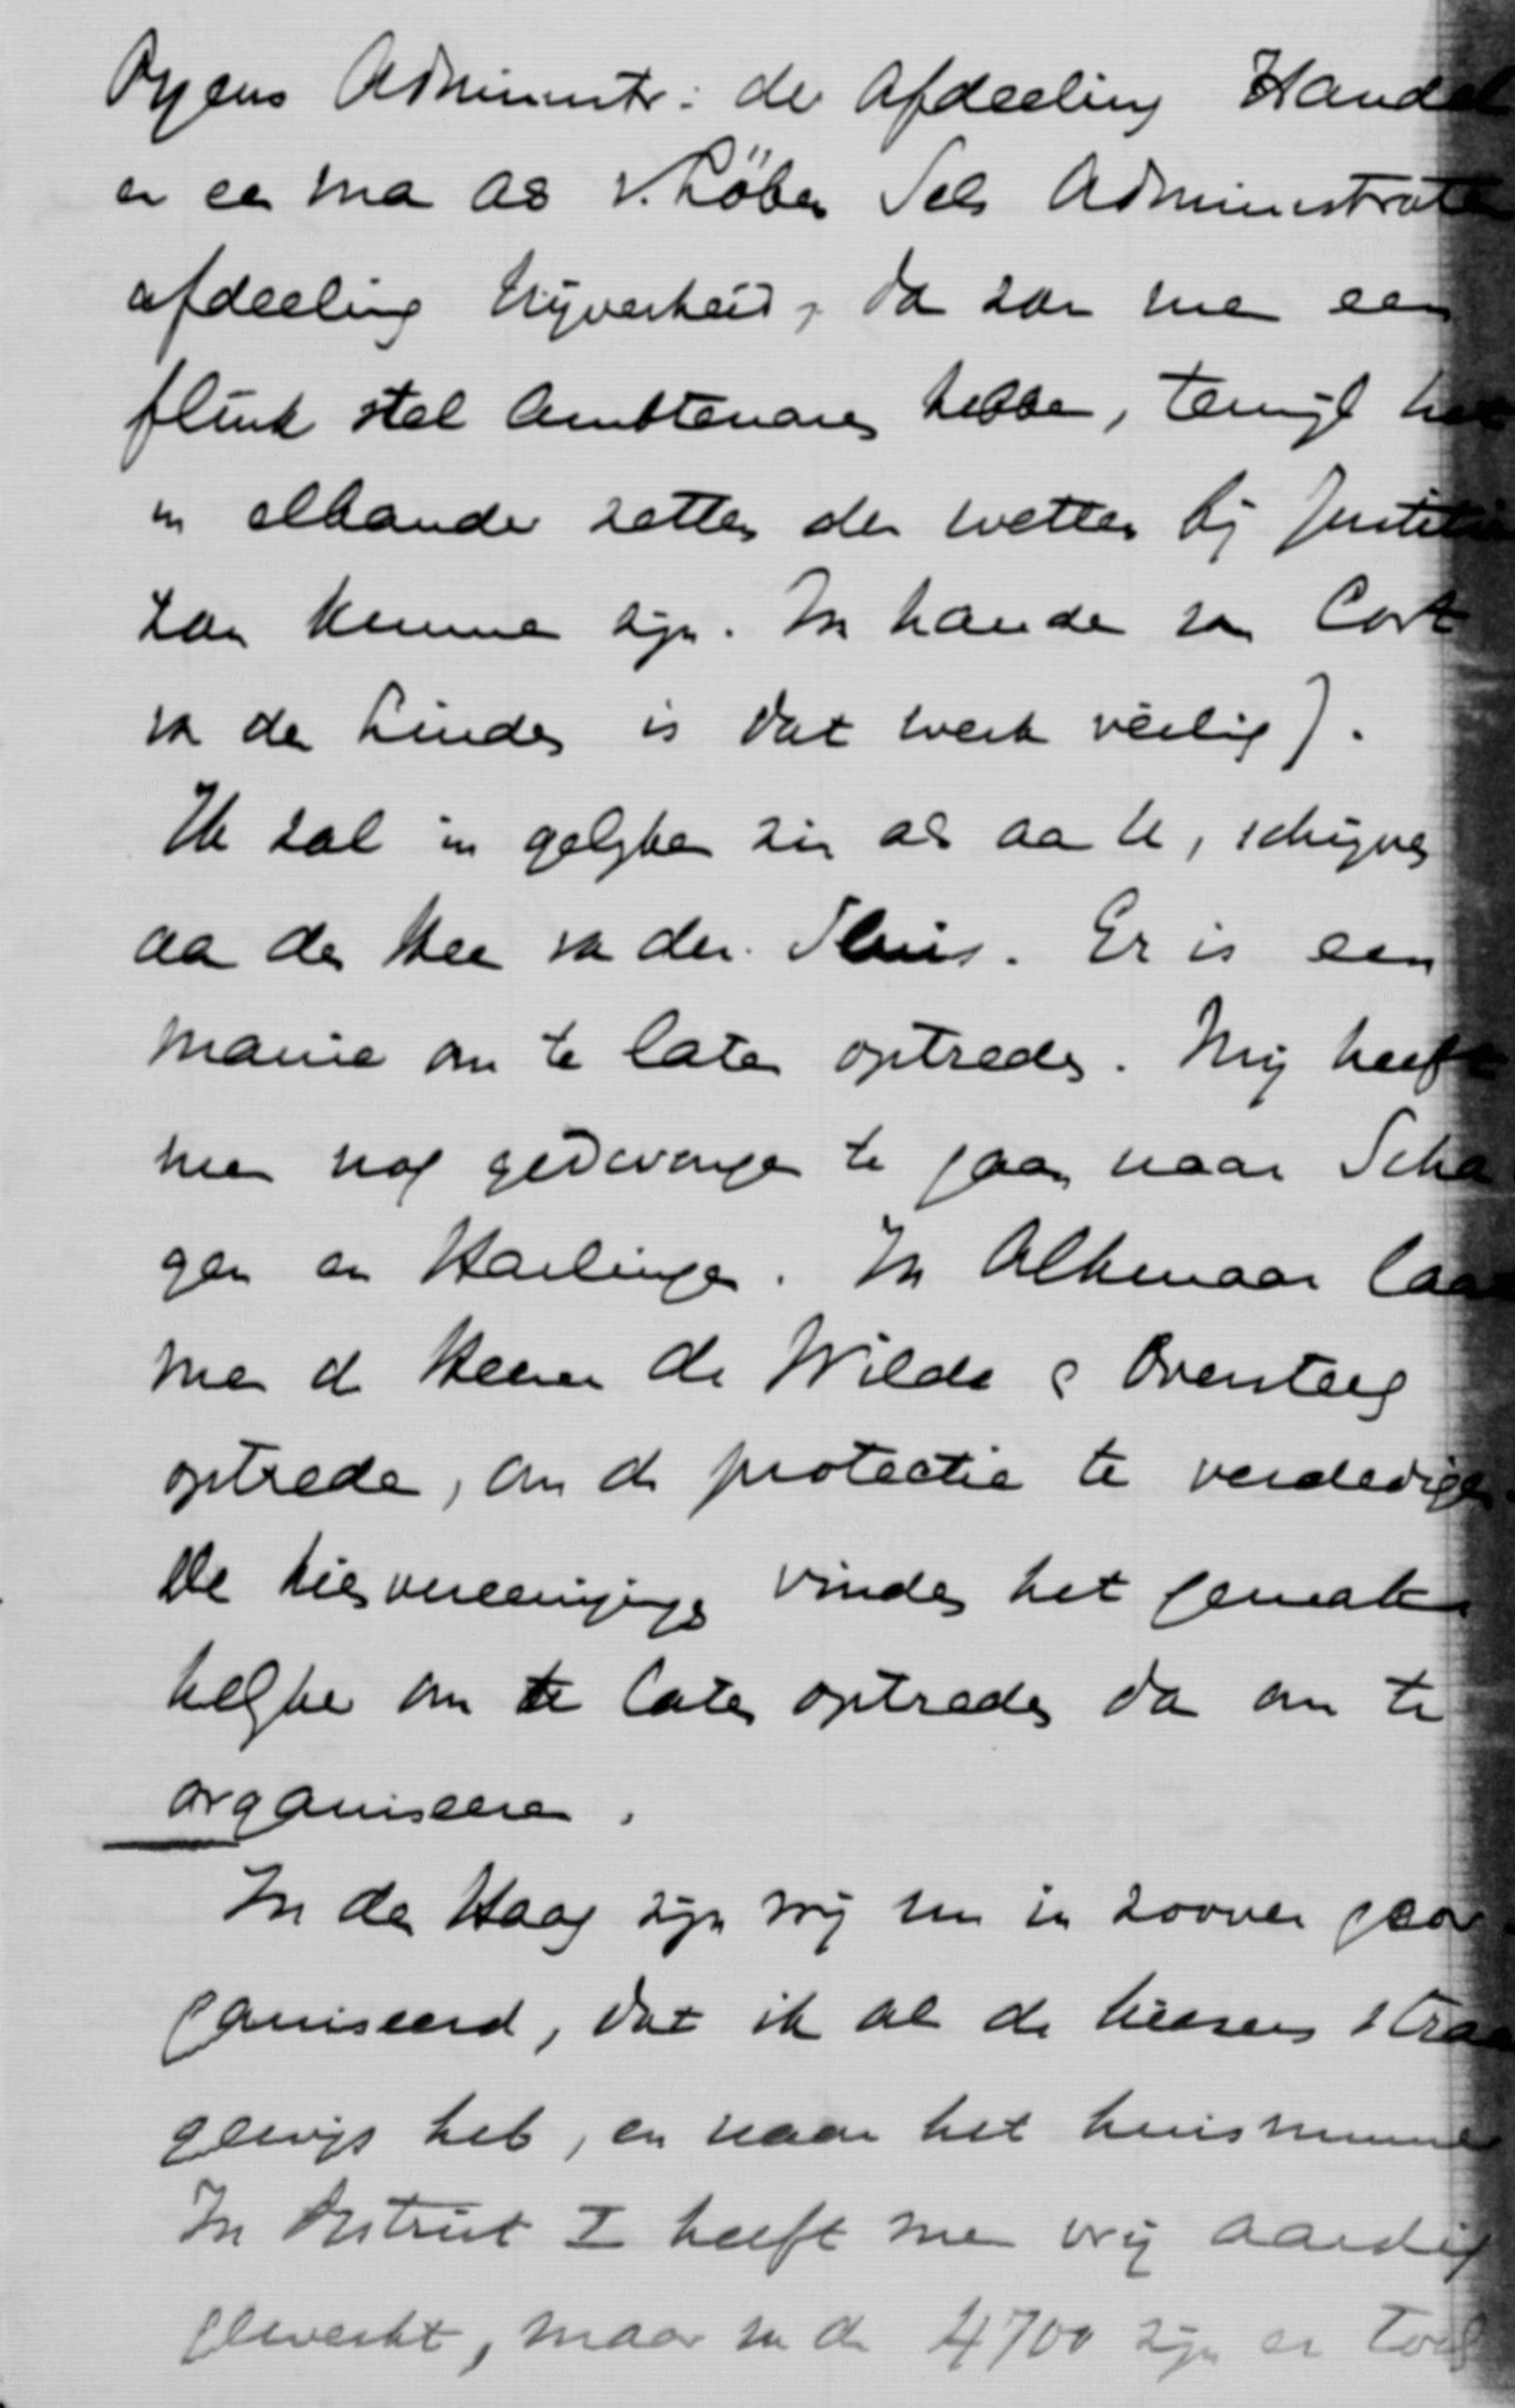 Oyens Administr: der afdeeling Handel
en een man als v. Löben Sels Administrateur
afdeeling Nijverheid, dan zou men een
flink stel ambtenaren hebben, terwijl het
in elkander zetten der wetten bij Justitie
zou kunnen zijn. In handen van Cort
van der Linden is dat werk veilig).
Ik zal in gelijken zin als aan U, schrijven
aan den Heer van der Sluis. Er is een
manie om te laten optreden. Mij heeft
men nog gedwongen te gaan naar Scha
gen en Harlingen. In Alkmaar laat
men de Heeren de Wilde & Oversteeg
optreden, om de protectie te verdedigen.
De kiesvereenigingen vinden het gemakke
helijker om te laten optreden dan om te
organiseeren.
In den Haag zijn wij nu in zoover geor
ganiseerd, dat ik al de kiezers straats
gewijs heb, en naar het huisnummer
In District I heeft men vrij aardig
gewerkt, maar van de 4700 zijn er